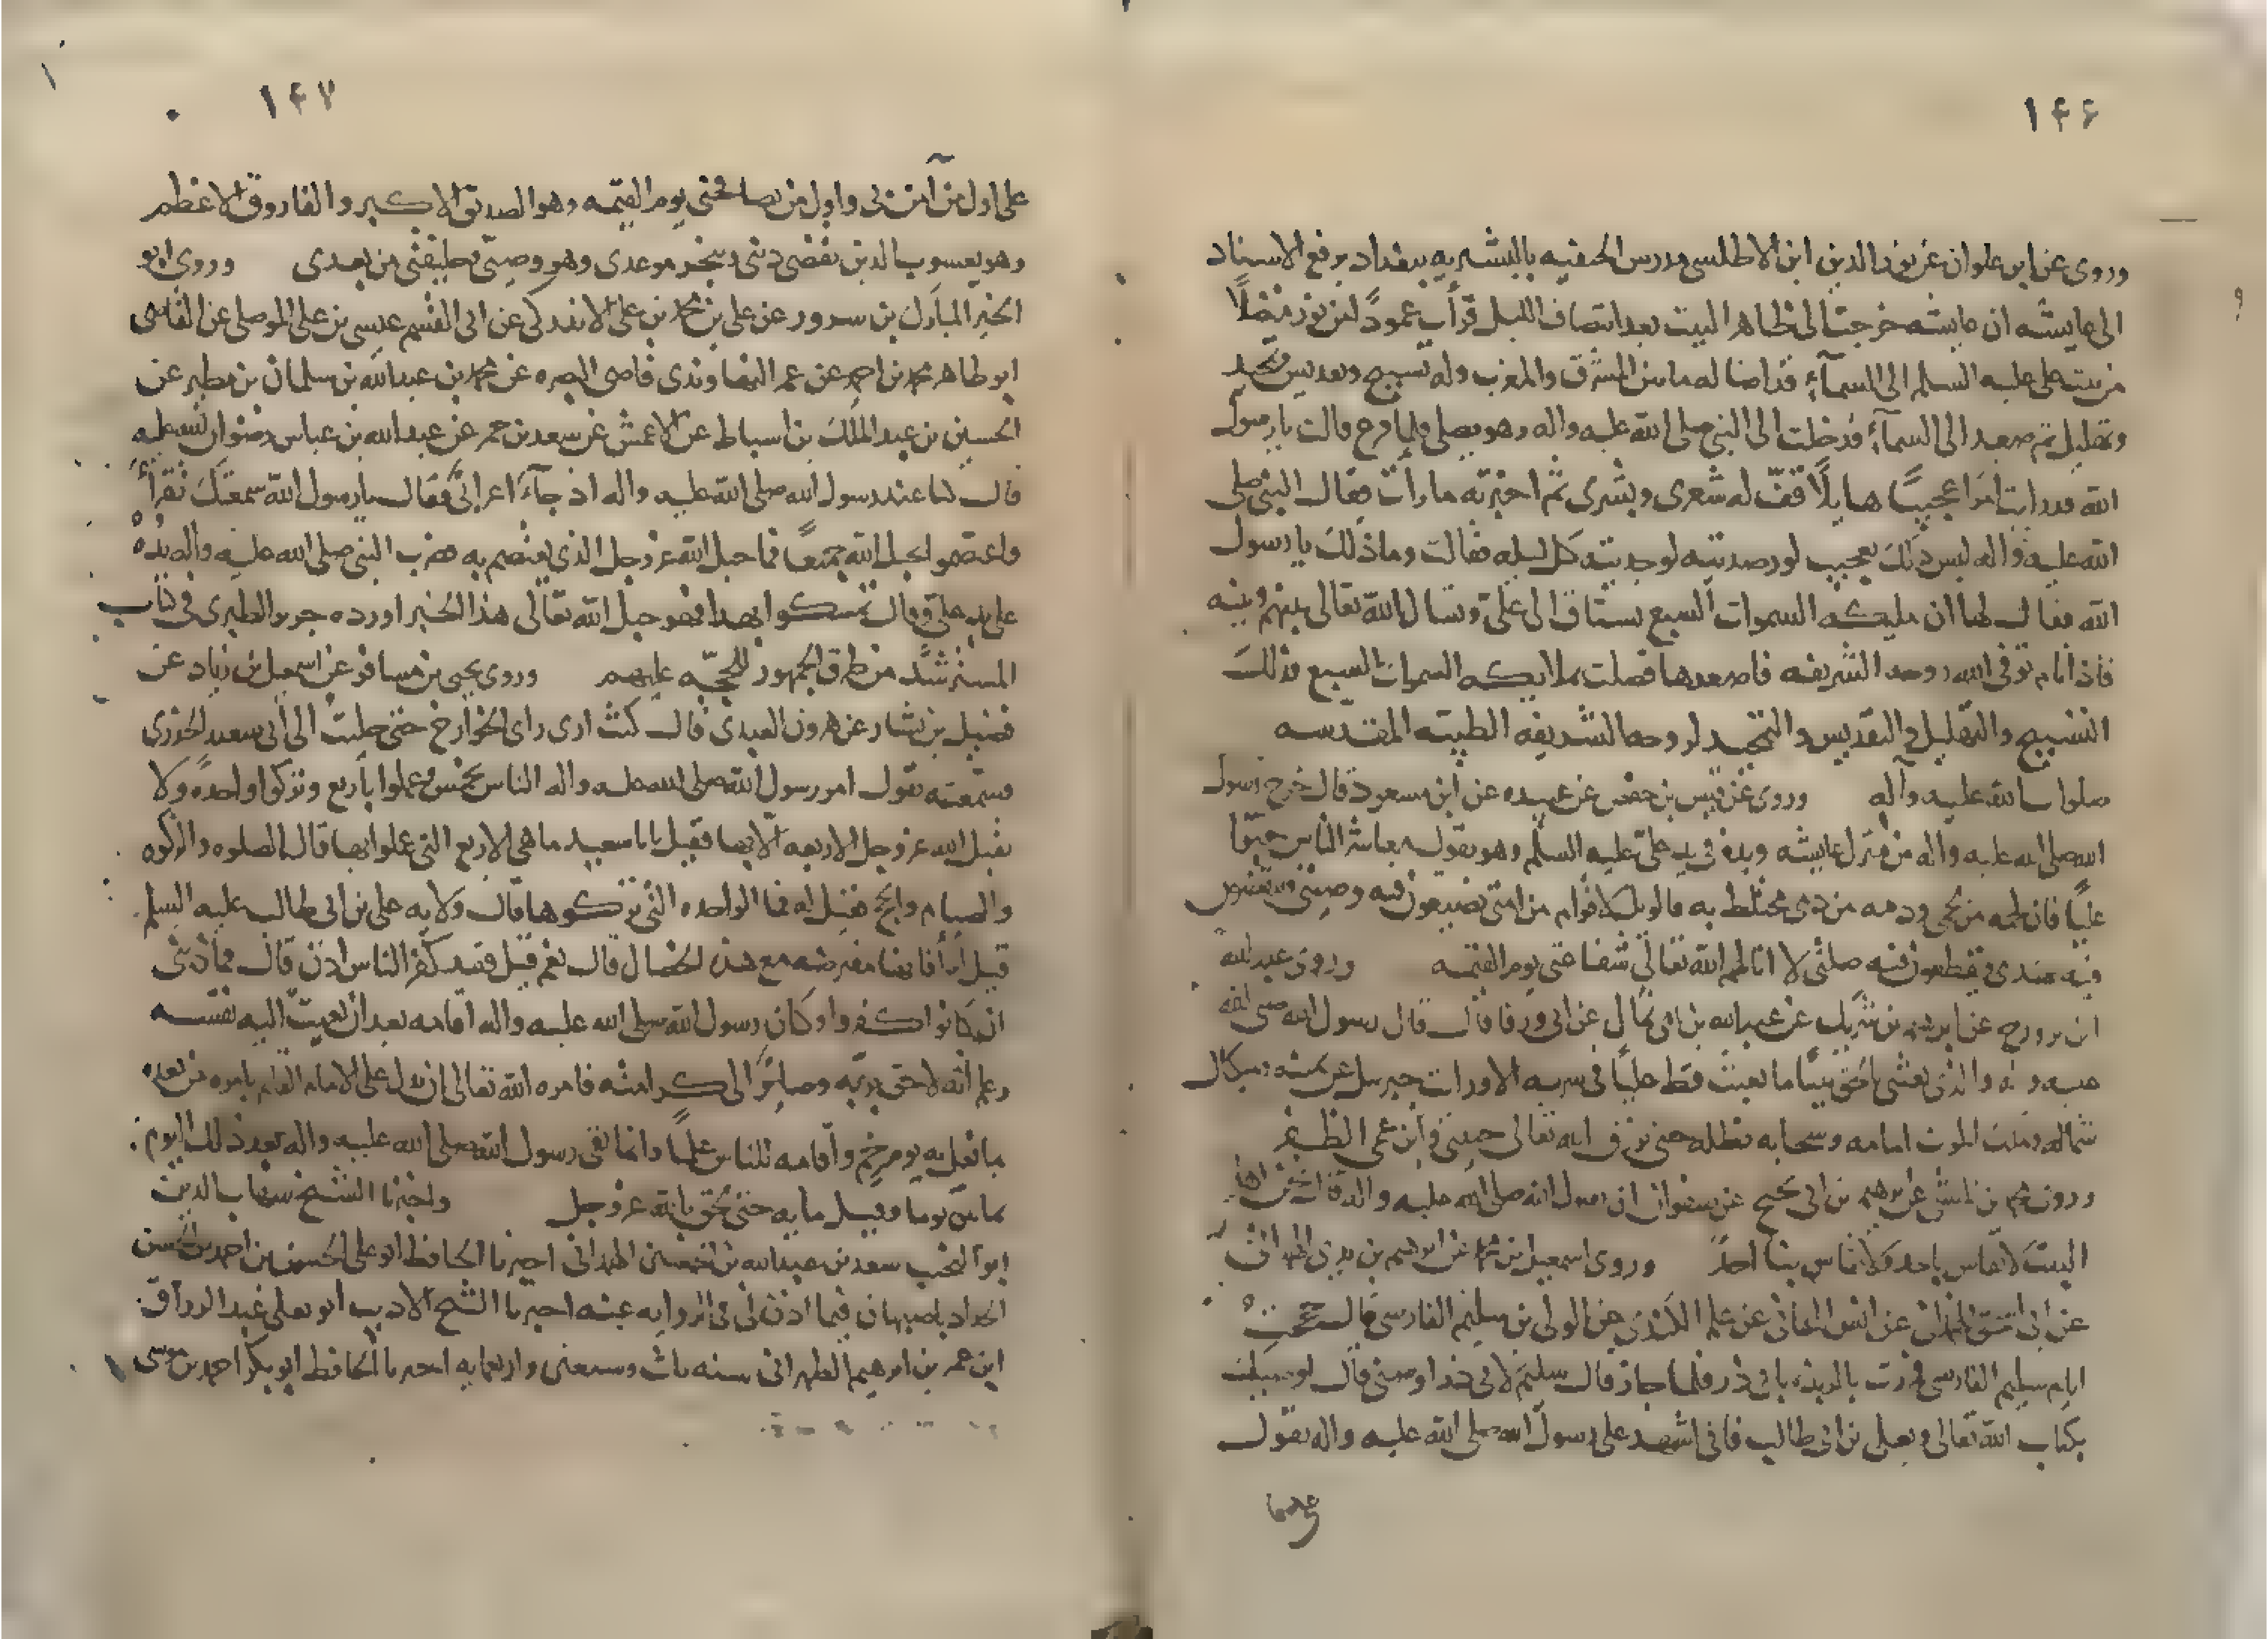 ١٤٦
وروى عن ابن علوان عن نور الدين ابن الاطلسى مدرس الحنفيه بالبشيريه ببغداد يرفع الاسناد
الى عايشه ان عايشه خرجت الى ظاهر البيت بعد انتصاف الليل فرأت عمودًا من نور متصلًا
من بيت على عليه السلم الى السمآء قد اضا له ما بين المشرق والمغرب وله تسبيح وتقديس وتحميد
وتهليل ثم صعد الى السمآء فدخلت الى النبى صلى الله عليه واله وهو يصلى فلما فرغ قالت يا رسول
الله قد رايت امرًا عجيبًا هايلًا قفّ له شعرى وبشرى ثم اخبرته ما رات فقال النبى صلى
الله عليه واله ليس ذلك بعجيب لو رصدتيه لوجدتيه كل ليله فقالت وما ذلك يا رسول
الله فقال لها ان مليكه السموات السبع تشتاق الى علىّ وتسال الله تعالى بينهم وبينه
فاذا نام توفى الله روحه الشريفه فاصعدها فصلت ملايكه السموات السبع فذلك
التسبيح والتهليل والتقديس والتمجيد لروحه الشريفه الطيبه المقدسه
صلوات الله عليه وآله وروى عن قيس بن حفص عن عبيده عن ابن مسعود قال خرج رسول
الله صلى الله عليه واله من منزل عايشه ويده فى يد علىّ عليه السلم وهو يقول معاشر الناس حبّوا
عليًا فان لحمه من لحمى ودمه من دمى مختلط به فالويل لاقوام من امتى يضيعون فيه وصيتى وينقضون
فيه عهدى ويقطعون فيه صلتى لا انالهم الله تعالى شفاعتى يوم القيمه وروى عبد الله
عن شريك عن عبد الله قال قال رسول الله صلى الله
عليه واله والذى بعثنى بالحق نبيًا ما بعثت قط عليًا فى سريه الا ورات جبريل عن يمينه وميكال
شماله وملك الموت امامه وسحابه تظله حتى يرزق الله تعالى حبيبى وابن عمى الظفر
وروى عن صفوان ان رسول الله صلى الله عليه واله
البيت لا يقاس باحد ولا يقاس بنا احدٌ وروى اسمعيل بن محمد عن ابرهيم
عن ابى عن علم بن سليم الفارسى قال حججت
ايام سليم الفارسى فمررت بالربذه بابى ذر فلما جاز قال سليم لابى ذر اوصنى قال
بكتاب الله تعالى وبعلى بن ابى طالب فانى اشهد على رسول الله صلى الله عليه واله يقول
١٤٧
على اول من آمن بى واول من يصافحنى يوم القيمه وهو الصديق الاكبر والفاروق الاعظم
وهو يعسوب الدين يقضى دينى وينجز موعدى وهو وصيّى وخليفتى من بعدى وروى ابو
الخير المبارك بن سرور عن على بن محمد بن على عن ابى القسم عيسى بن على الموصلى عن القاضى
ابو طاهر محمد بن احمد عن عمر النهاوندى قاضى البصره عن محمد بن عبد الله بن سلمان بن مطير عن
الحسين بن عبد الملك بن اسباط عن الاعمش عن سعد بن عن عبد الله بن عباس رضوان الله عليه
قال كنا عند رسول الله صلى الله عليه واله اذ جآء اعرابىٌّ فقال يا رسول الله سمعتك تقرأ
واعتصموا بحبل الله جميعًا فما حبل الله عز وجل الذى يعتصم به فضرب النبى صلى الله عليه واله يده
على يد علىّ وقال تمسكوا بهذا فهو حبل الله تعالى هذا الخبر اورده جرير الطبرى فى كتاب
المسترشد من طرق الجمهور للحجّه عليهم وروى يحيى بن مسافر عن اسمعيل بن زياد عن
فضيل بن يسار عن هرون العبدى قال كنت ارى راى الخوارج حتى جلست الى ابى سعيد الخدرى
فسمعته يقول امر رسول الله صلى الله عليه واله الناس بخمس فعملوا باربع وتركوا واحدهً ولا
يقبل الله عز وجل الاربعه الا بها فقيل يا با سعيد ما هى الاربع التى عملوا بها قال الصلوه والزكوه
والصيام والحج فقيل له فما الواحده التى تركوها قال ولايه على بن ابى طالب عليه السلم
قيل له أفانها مفترضه مع هذه الخصال قال نعم قيل فقد كفر الناس اذن قال فما ذنبى
ان كانوا كفروا وكان رسول الله صلى الله عليه واله اقامه بعد ان نعيت اليه نفسه
وعلم انه لاحق بربّه وصايرٌ الى كرامته فامره الله تعالى ان يدل على الامام القايم بامره من بعده
ما فعل به يوم خمٍ واقامه للناس علمًا وانما بقى رسول الله صلى الله عليه واله بعد ذلك اليوم
ثمانين يوما وقيل مايه حتى لحق بالله عز وجل واخبرنا الشيخ شهاب الدين
ابو النجيب سعد بن عبد الله بن الحسين الهمدانى اخبرنا الحافظ ابو على الحسن بن احمد بن الحسن
الحداد باصبهان فيما اذن لى فى الروايه عنه اخبرنا الشيخ الاديب ابو يعلى عبد الرزاق
ابن عمر بن ابرهيم الطهرانى سنه ثلث وسبعين واربعمايه اخبرنا الحافظ ابو بكر احمد بن موسى